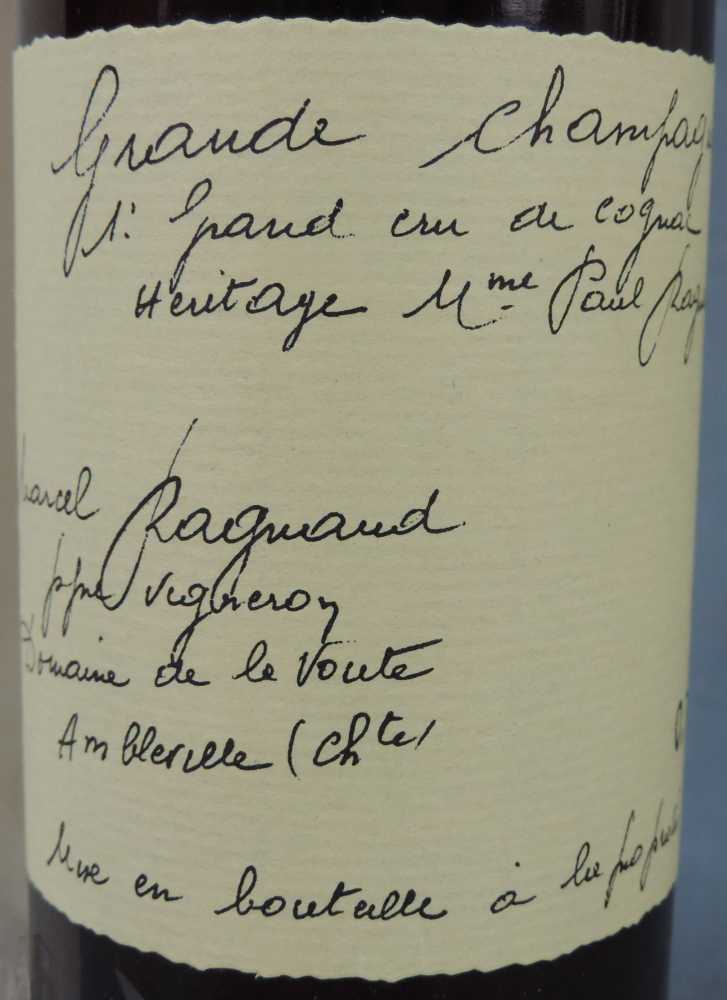 Grande Champag
1º Grand cru de cognac
Héritage Mme Paul Rag
Marcel Ragnaud
ppre vigneron
Domaine de la Voute
Ambleville (Chte)
0,
Mise en bouteille à la proprié